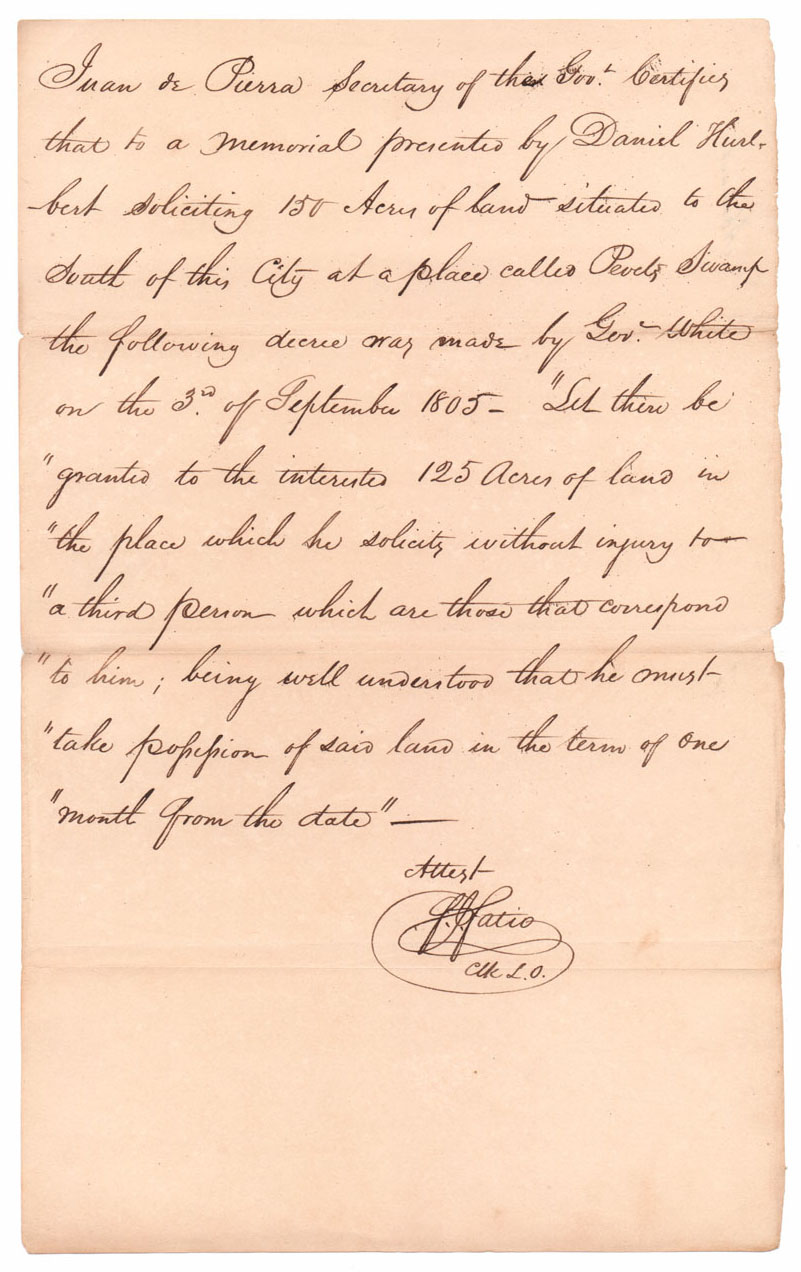 Juan de Pierra Secretary of the Govt. Certifies
that to a memorial presented by Daniel Hurl-
-bert soliciting 150 Acres of land situated to the
South of this City at a place called Pevets Swamp
the following decree was made by Govr. White
on the 3rd. of September 1805 - "Let there be
"granted to the interested 125 Acres of land in
"the place which he solicits without injury to
"a third person which are those that correspond
"to him; being well understood that he must
"take possession of said land in the term of one
"month from the date" —
Attest
F. J. Fatio
Clk L.O.